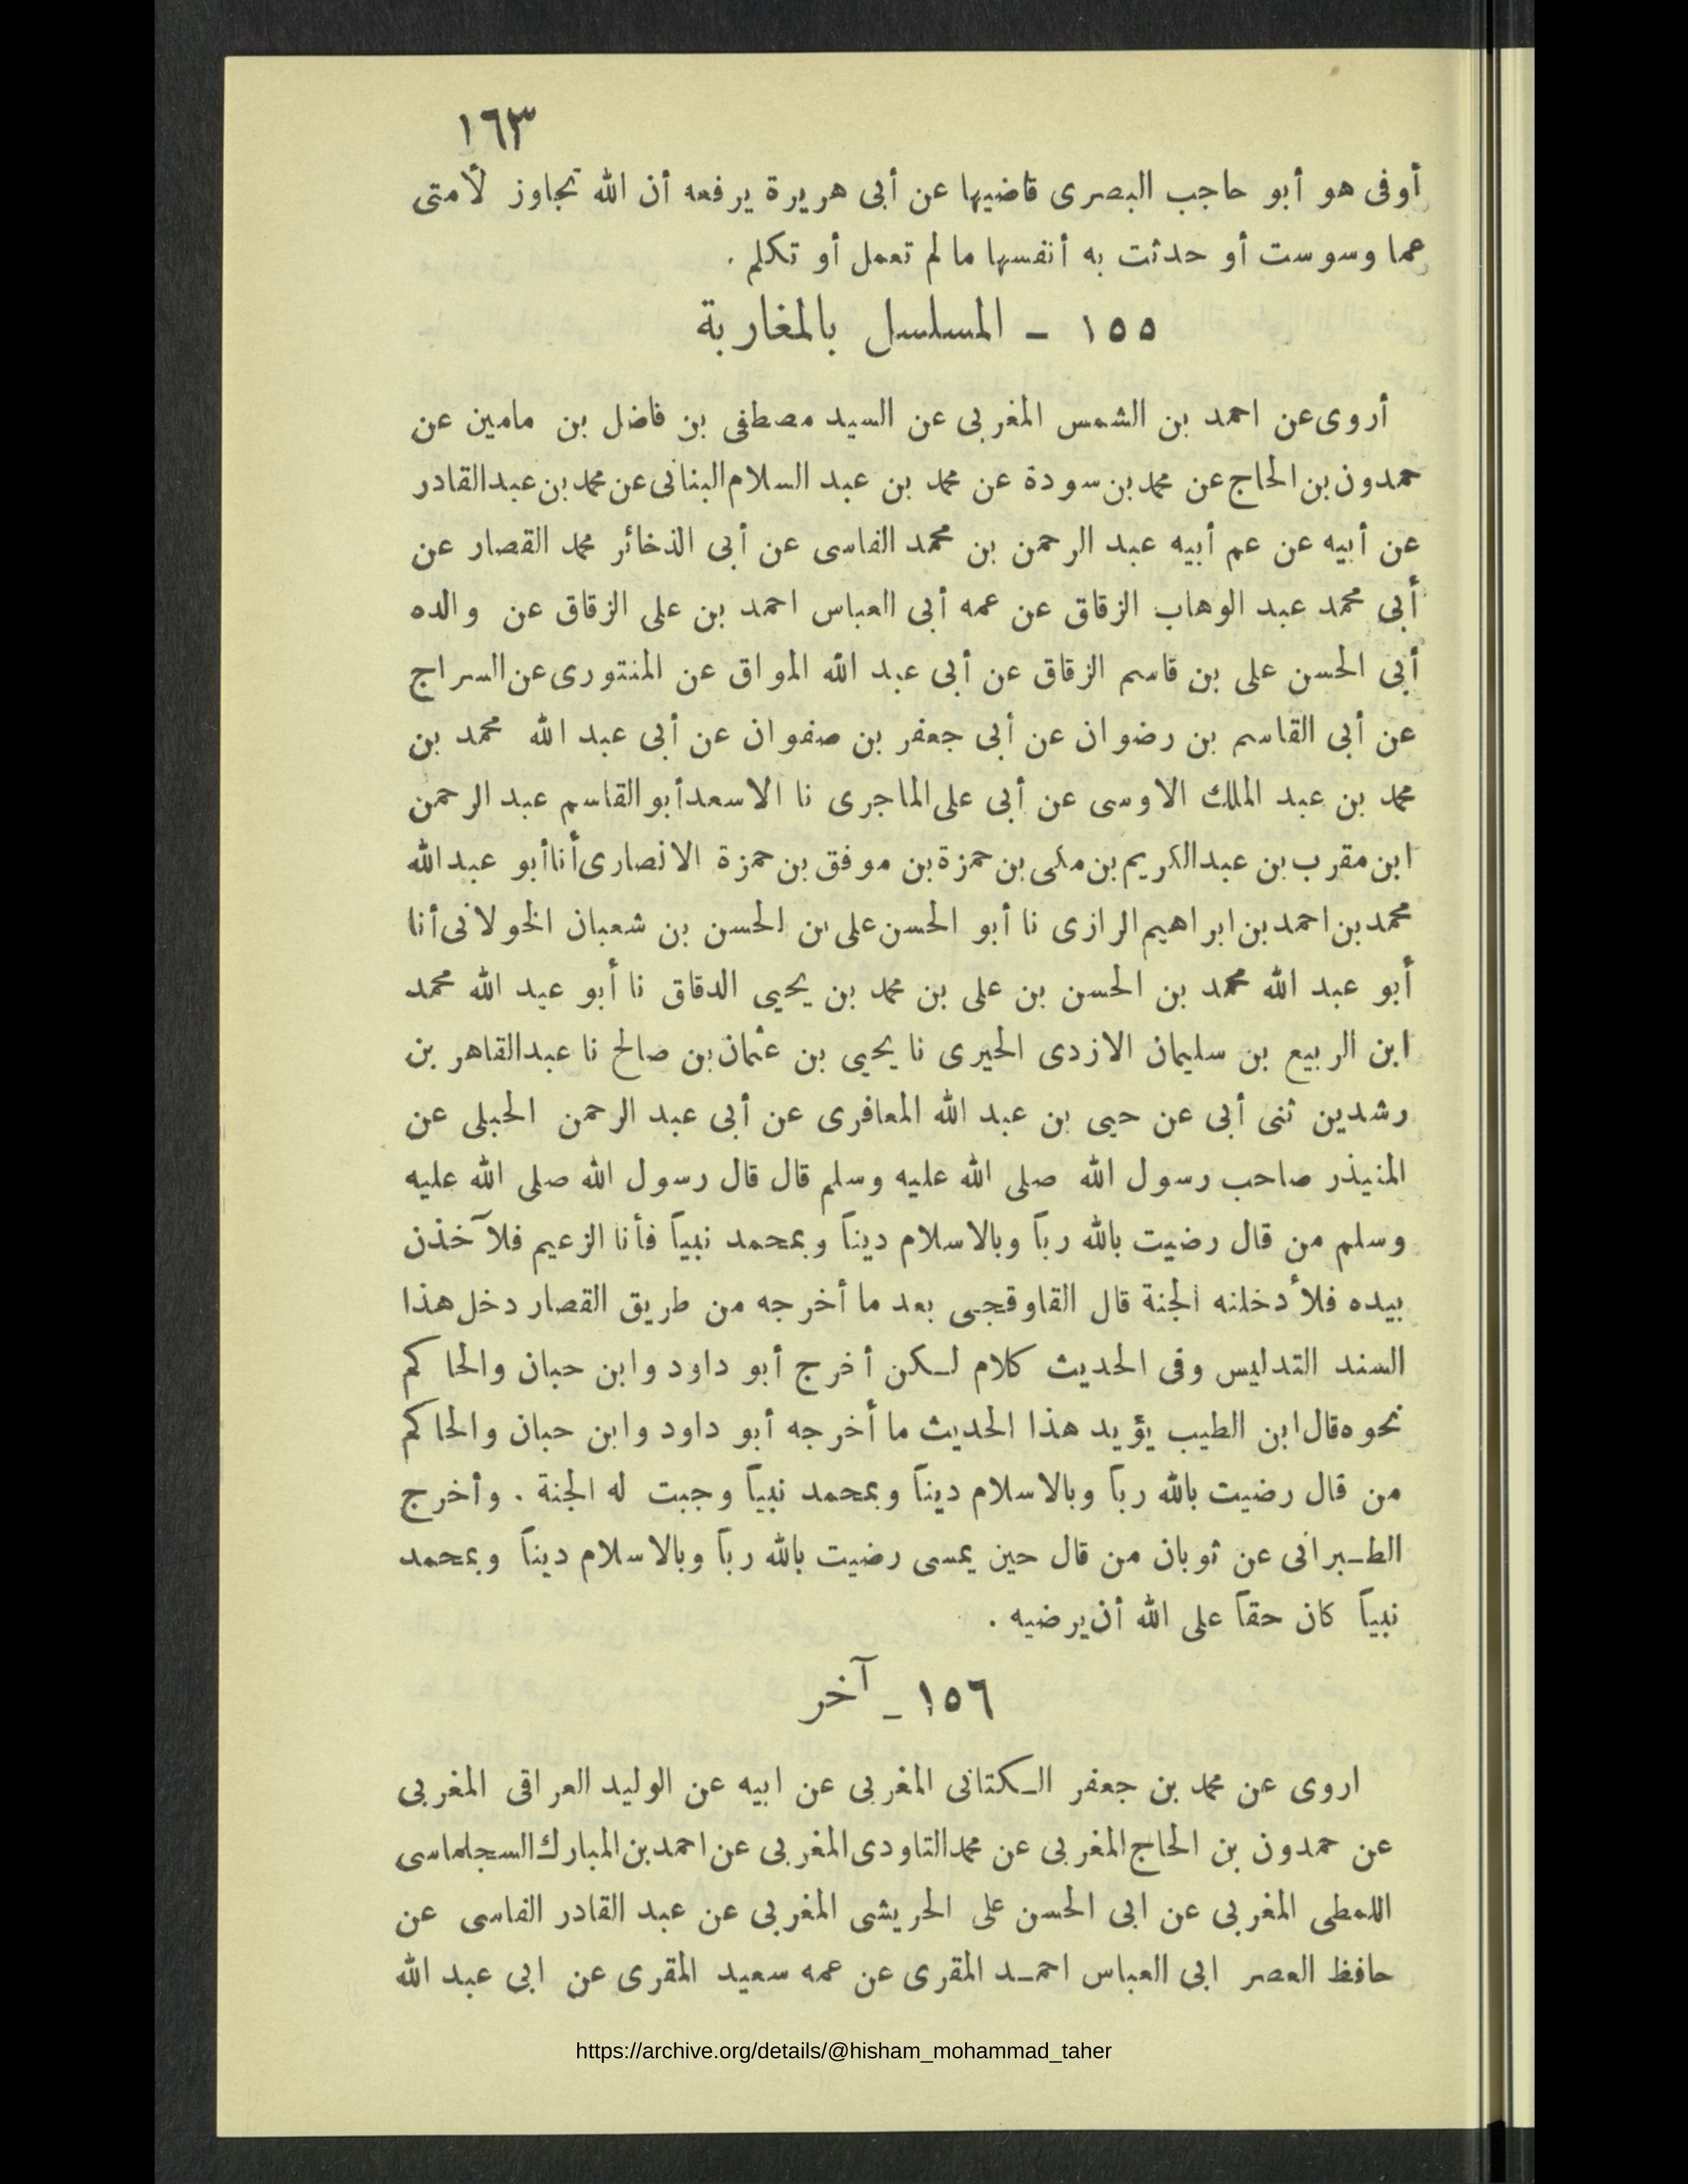 ١٦٣
أوفى هو أبو حاجب البصرى قاضيها عن أبى هريرة يرفعه أن الله تجاوز لأمتى
عما وسوست أو حدثت به أنفسها مالم تعمل أو تكلم .
١٥٥ – المسلسل بالمغاربة
أروى عن احمد بن الشمس المغربى عن السيد مصطفى بن فاضل بن مامين عن
حمدون بن الحاج عن محمد بن سودة عن محمد بن عبد السلام البنانى عن محمد بن عبد القادر
عن أبيه عن عم أبيه عبد الرحمن بن محمد الفاسى عن أبى الذخائر محمد القصار عن
أبى محمد عبد الوهاب الزقاق عن عمه أبى العباس احمد بن على الزقاق عن والده
أبى الحسن على بن قاسم الزقاق عن أبى عبد الله المواق عن المنتورى عن السراج
عن أبى القاسم بن رضوان عن أبى جعفر بن صفوان عن أبى عبد الله محمد بن
محمد بن عبد الملك الاوسى عن أبى على الماجرى نا الاسعد أبو القاسم عبد الرحمن
ابن مقرب بن عبد الكريم بن مكى بن حمزة بن موفق بن حمزة الانصارى أنا أبو عبد الله
محمد بن احمد بن ابراهيم الرازى نا أبو الحسن على بن الحسن بن شعبان الخولانى أنا
أبو عبد الله محمد بن الحسن بن على بن محمد بن يحيى الدقاق نا أبو عبد الله محمد
ابن الربيع بن سليمان الازدى الحيرى نا يحيى بن عثمان بن صالح نا عبد القاهر بن
رشدين ثنى أبى عن حيى بن عبد الله المعافرى عن أبى عبد الرحمن الحبلى عن
المنيذر صاحب رسول الله صلى الله عليه وسلم قال قال رسول الله صلى الله عليه
وسلم من قال رضيت بالله رباً وبالاسلام ديناً وبمحمد نبياً فأنا الزعيم فلآخذن
بيده فلأدخلنه الجنة قال القاوقجى بعد ما أخرجه من طريق القصار دخل هذا
السند التدليس وفى الحديث كلام لـكن أخرج أبو داود وابن حبان والحاكم
نحوه قال ابن الطيب يؤيد هذا الحديث ما أخرجه أبو داود وابن حبان والحاكم
من قال رضيت بالله رباً وبالاسلام ديناً وبمحمد نبياً وجبت له الجنة . وأخرج
الطـبرانى عن ثوبان من قال حين يمسى رضيت بالله رباً وبالاسلام ديناً وبمحمد
نبياً كان حقاً على الله أن يرضيه .
١٥٦ ـ آخر
اروى عن محمد بن جعفر الـكتانى المغربى عن ابيه عن الوليد العراقى المغربى
عن حمدون بن الحاج المغربى عن محمد التاودى المغربى عن احمد بن المبارك السجلماسى
اللمطى المغربى عن ابى الحسن على الحريشى المغربى عن عبد القادر الفاسى عن
حافظ العصر ابى العباس احمـد المقرى عن عمه سعيد المقرى عن ابى عبد الله
https://archive.org/details/@hisham_mohammad_taher